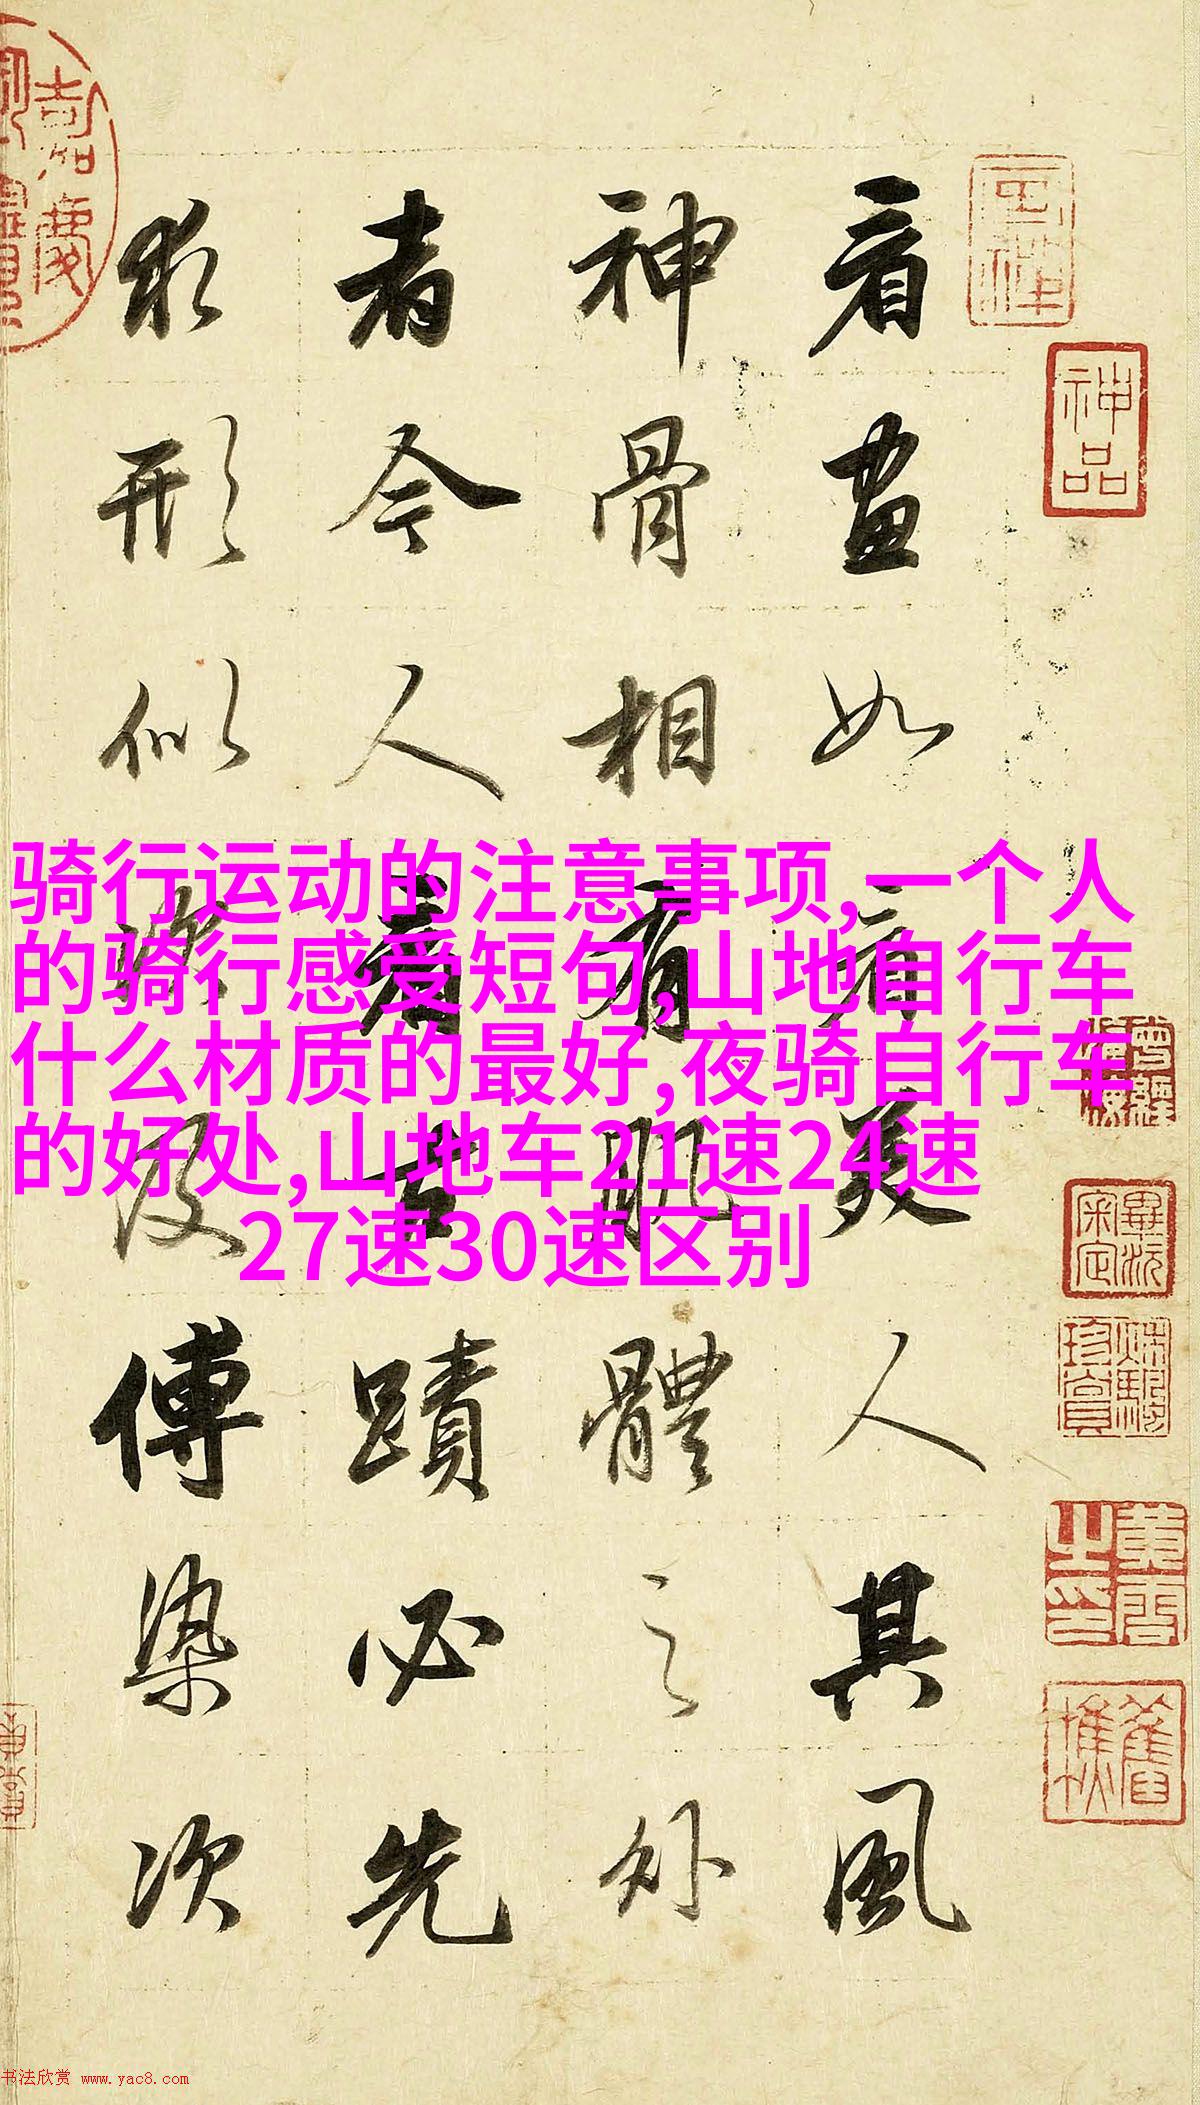 看畫如看美人其風
神骨相有肌體之外
者今人看古蹟必先
求形似次及傅染次
骑行运动的注意事项,一个人
的骑行感受短句,山地自行车
什么材质的最好,夜骑自行车
的好处,山地车21速24速
27速30速区别
神品
嘉慶
書法欣赏 www.yac8.com